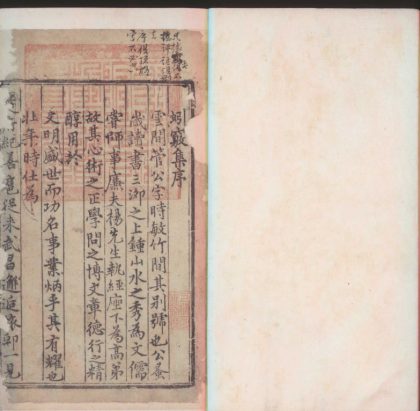 蚓竅集序
雲間管公字時敏竹間其別號也公蚤
歲讀書三泖之上鍾山水之秀為文儒
嘗師事廉夫楊先生執經座下為高弟
故其心術之正學問之博文章德行之精
醇用於
文明盛世而功名事業炳乎其有耀也
壯年時仕為
紀善扈從來武昌邂逅家邸一見